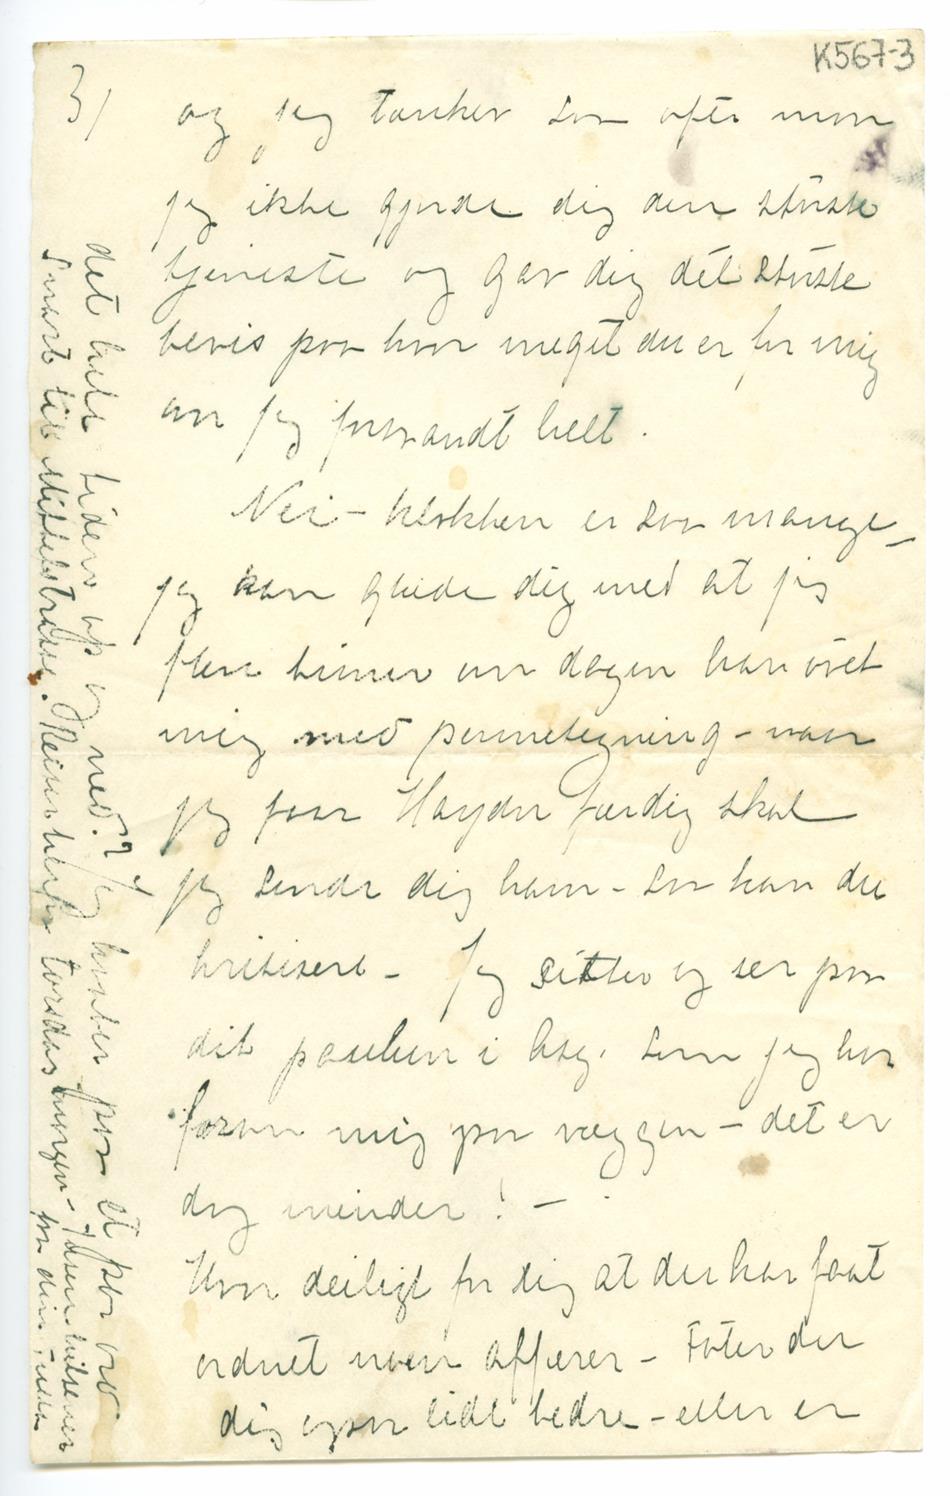 K567-3
3/
og jeg tænker saa ofte mon
jeg ikke gjorde dig den største
tjeneste og gav dig det største
bevis paa hvor meget du er for mig
om jeg forsvandt helt.
Nei – klokken er saa mange –
jeg kan glæde dig med at jeg
flere timer om dagen har øvet
mig med pennetegning – naar
jeg faar Haydn færdig skal
jeg sende dig ham – saa kan du
kritisere – Jeg sitter og ser paa
dit i som jeg har
foran mig paa væggen – det er
dog minder! –
Hvor deiligt for dig at du har faat
ordnet noen affærer – Føler du
dig ogsaa lidt bedre – eller er
det hele tiden op og ned? Jeg venter paa et par ord
snart til Mittelstrasse. Reiser herfra torsdag morgen –
fra din